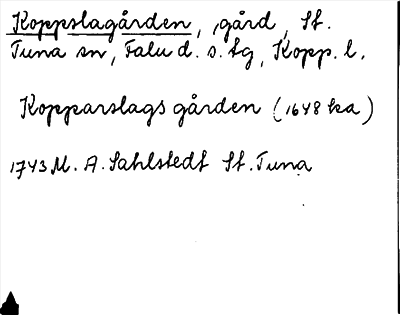 Kopps​lagården, gård, St.
Tuna sn, Falu d. s. tg, Kopp. l.
Kopparslags gården (1648 ka)
1743 M. A. Sahlstedt St. Tuna